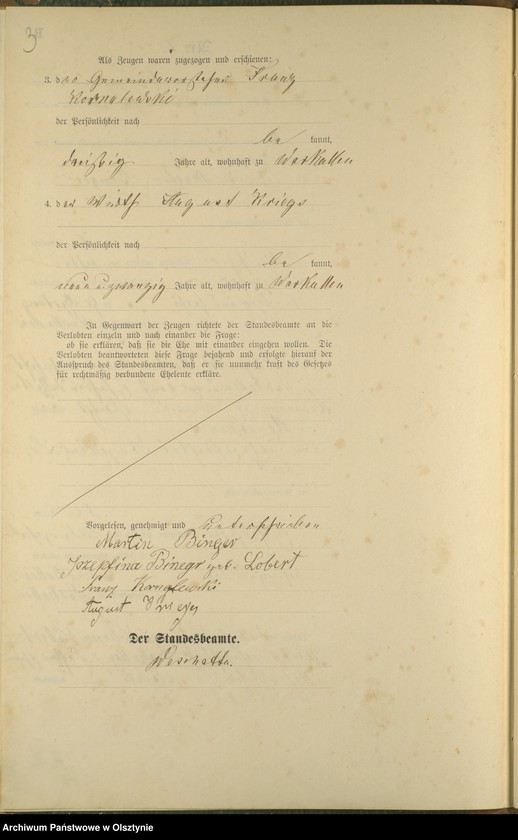 3
Als Zeugen waren zugezogen und erschienen:
3. der Gemeindevorsteher Franz
Kornalewski
der Persönlichkeit nach
be kannt,
dreißig Jahre alt, wohnhaft zu Warkallen
4. der Wirth August Kriegs
der Persönlichkeit nach
be kannt,
neunundzwanzig Jahre alt, wohnhaft zu Warkallen
In Gegenwart der Zeugen richtete der Standesbeamte an die
Verlobten einzeln und nach einander die Frage:
ob sie erklären, daß sie die Ehe mit einander eingehen wollen. Die
Verlobten beantworteten diese Frage bejahend und erfolgte hierauf der
Ausspruch des Standesbeamten, daß er sie nunmehr kraft des Gesetzes
für rechtmäßig verbundene Eheleute erkläre.
Vorgelesen, genehmigt und unterschrieben
Martin Binger
Jozephina Binegr geb. Lobert
Franz Kornalewski
August
Der Standesbeamte.
Archiwum Państwowe w Olsztynie